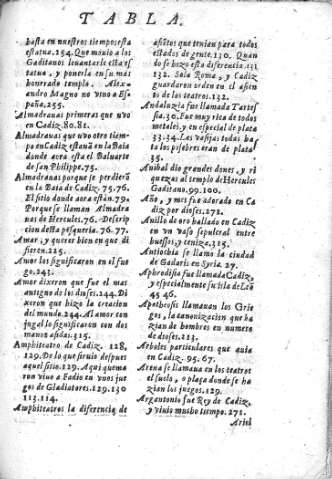 TABLA.
hasta en nuestros tiempos esta
estatua.254. Que mouio a los
Gaditanos leuantarle esta es
tatua, y ponerla en su mas
honrrado templo. Alex-
andro Magno no vino a Es
paña,255.
Almadrauas primeras que vuo
en Cadiz.80.81.
Almadrauas que vuo otro tiem
po en Cadiz estauã en la Baìa
donde aora esta el Baluarte
de san Phelippe.75.
Almadrauas porque se perdierõ
en la Baìa de Cadiz. 75.76.
El sitio donde aora estàn.79.
Porque se llaman Almadra
uas de Hercules.76. Descrip
cion desta pesqueria. 76.77.
Amar, y querer bien en que di
fieren.225.
Amor los significaron en el fue
go.243.
Amor dixeron que fue el mas
antiguo de los dioses.244.Di
xeron que hizo la creacion
del mundo.244. Al amor con
jugal lo significaron con dos
manos asidas.315.
Amphiteatro de Cadiz. 128,
129.De lo que siruio despues
aquel sitio.129. A qui quema
ron viuo a Fadio en vnos jue
gos de Gladiatores.129.130
113.114.
Amphiteatros la diferencia de
asiẽtos que tenian para todos
estados de gente.130. Quan
do se hizo esta diferencia.131
132. Sola Roma, y Cadiz
guardaron orden en el asien
to de los teatros.132.
Andaluzia fue llamada Tartes
sia.30.Fue muy rica de todos
metales, y en especial de plata
33.34.Las vasijas todas has
ta los pesebres eran de plata
35.
Anibal dio grandes dones, y ri
quezas al templo de Hercules
Gaditano.99.100.
Año, y mes fue adorado en Ca
diz por dioses.271.
Anillo de oro hallado en Cadiz
en vn vaso sepulcral entre
huessos, y ceniza.315.
Antiochia se llamo la ciudad
de Gadaris en Syria. 27.
Aphrodisia fue llamada Cadiz,
y especialmente su isla de Leõ
45 46.
Apotheosis llamauan los Grie
gos, la canonizacion que ha
zian de hombres en numero
de dioses.213.
Arboles particulares que auia
en Cadiz. 95.67.
Arena se llamaua en los teatros
el suelo, o plaça donde se ha
zian los juegos.129.
Argantonio fue Rey de Cadiz,
y viuio mucho tiempo.271.
Ariel